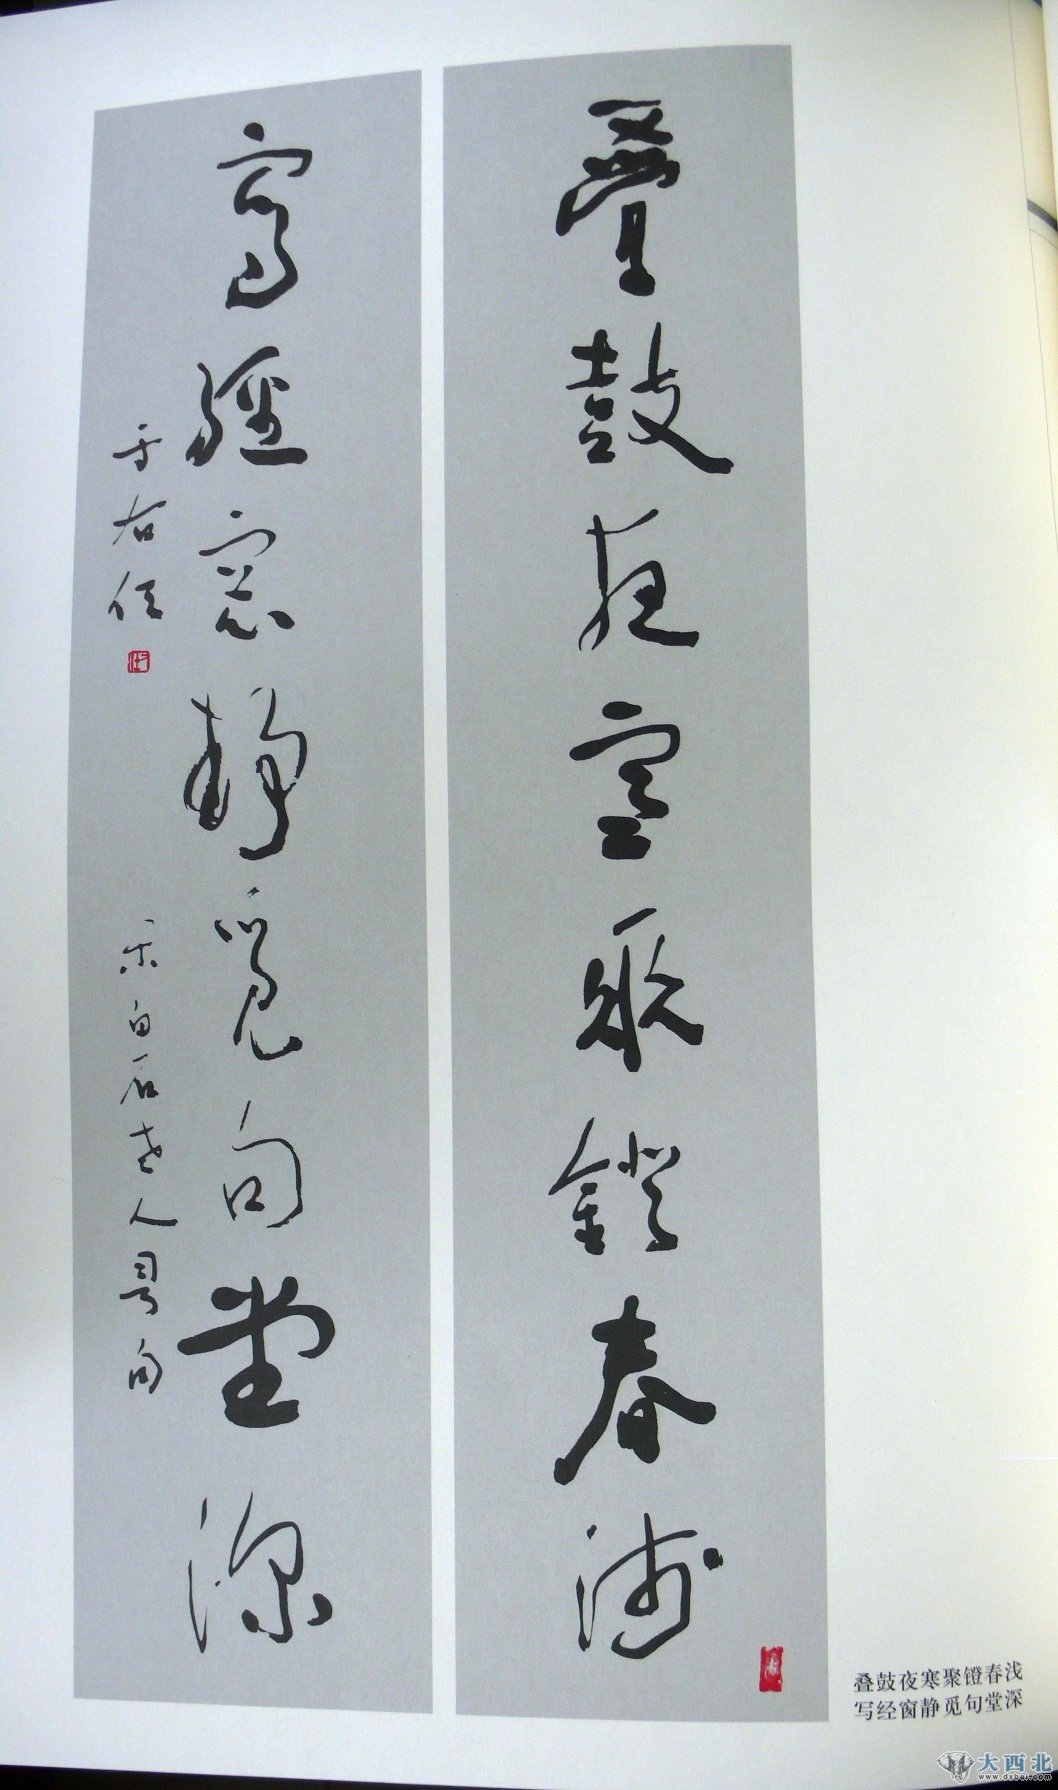 叠鼓夜寒聚镫春浅
寫經窗靜覓句堂深
于右任
宋白石老人詞句
叠鼓夜寒聚镫春浅
写经窗静觅句堂深
大西北
www.dxbei.com